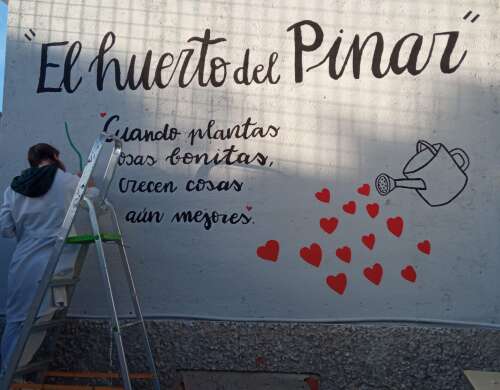 "El huerto del Pinar"
Cuando plantas
cosas bonitas,
crecen cosas
aún mejores.